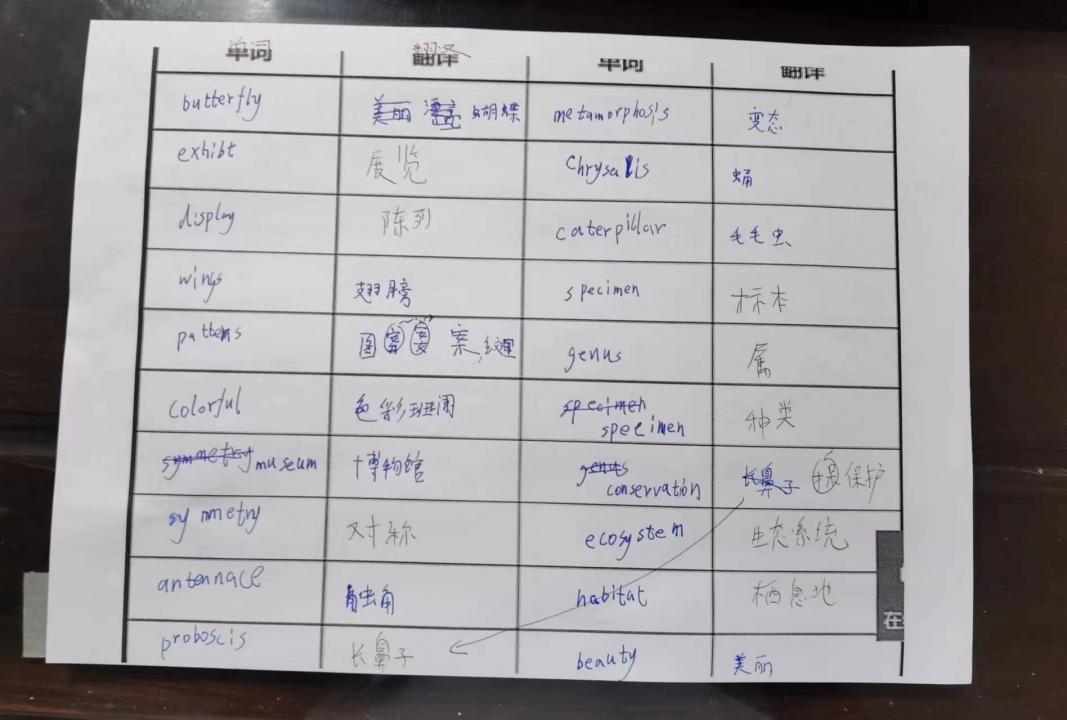 单词 翻译 单词 翻译
butterfly 美丽 蝴蝶 metamorphosis 变态
exhibt 展览 Chrysalis 蛹
display 陈列 caterpillar 毛毛虫
wings 翅膀 specimen 标本
pattens 图案 案,纹理 genus 属
colorful 色彩班闲 specimen specimen 种类
symmetry museum 博物馆 genus conservation 长鼻子 保护
symmetry 对称 ecosystem 生态系统
antennace 角 habitat 栖息地
proboscis 长鼻子 beauty 美丽
在